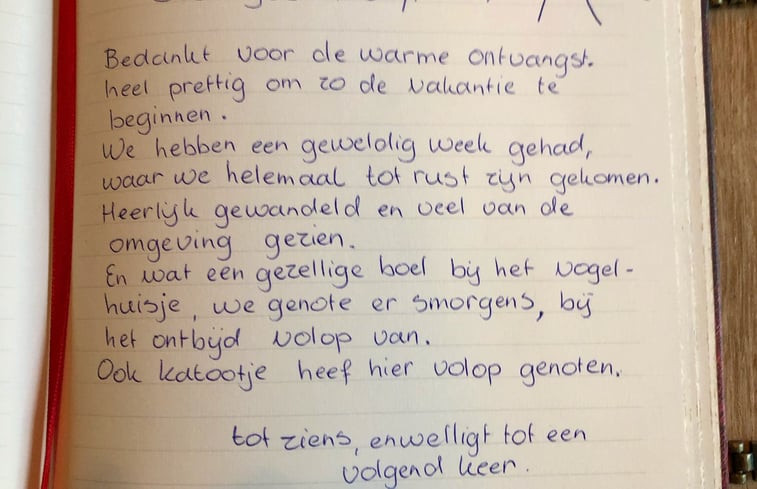 Bedankt voor de warme ontvangst.
heel prettig om zo de vakantie te
beginnen.
We hebben een geweldig week gehad,
waar we helemaal tot rust zijn gekomen.
Heerlijk gewandeld en veel van de
omgeving gezien.
En wat een gezellige boel bij het vogel-
huisje, we genote er smorgens, bij
het ontbijd volop van.
Ook katootje heef hier volop genoten.
tot ziens, enwelligt tot een
volgend keer.